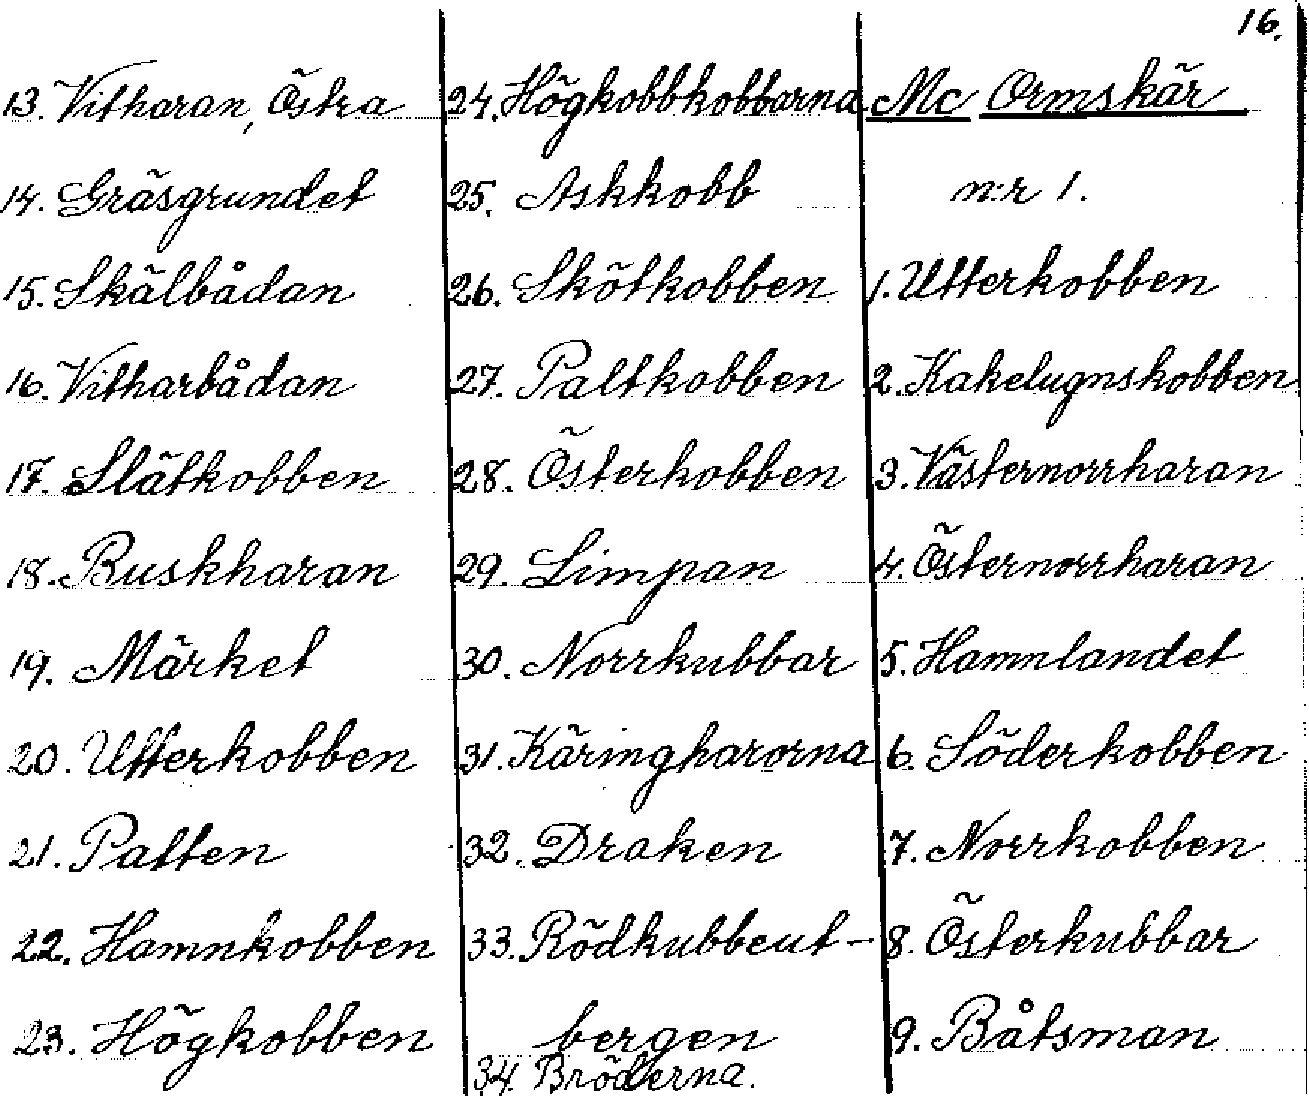 16.
13. Vitharan, Östra
14. Gräsgrundet
15. Skälbådan
16. Vitharbådan
17. Slätkobben
18. Buskharan
19. Märket
20. Utterkobben
21. Patten
22. Hamnkobben
23. Högkobben
24. Högkobbkobbarna
25. Askkobb
26. Skötkobben
27. Paltkobben
28. Österkobben
29. Limpan
30. Norrkubbar
31. Käringharorna
32. Draken
33. Rödkubbeut-
bergen
34. Bröderna.
Mc Ormskär
n:r 1.
1. Utterkobben
2. Kakelugnskobben
3. Västernorrharan
4. Östernorrharan
5. Hamnlandet
6. Söderkobben
7. Norrkobben
8. Österkubbar
9. Båtsman